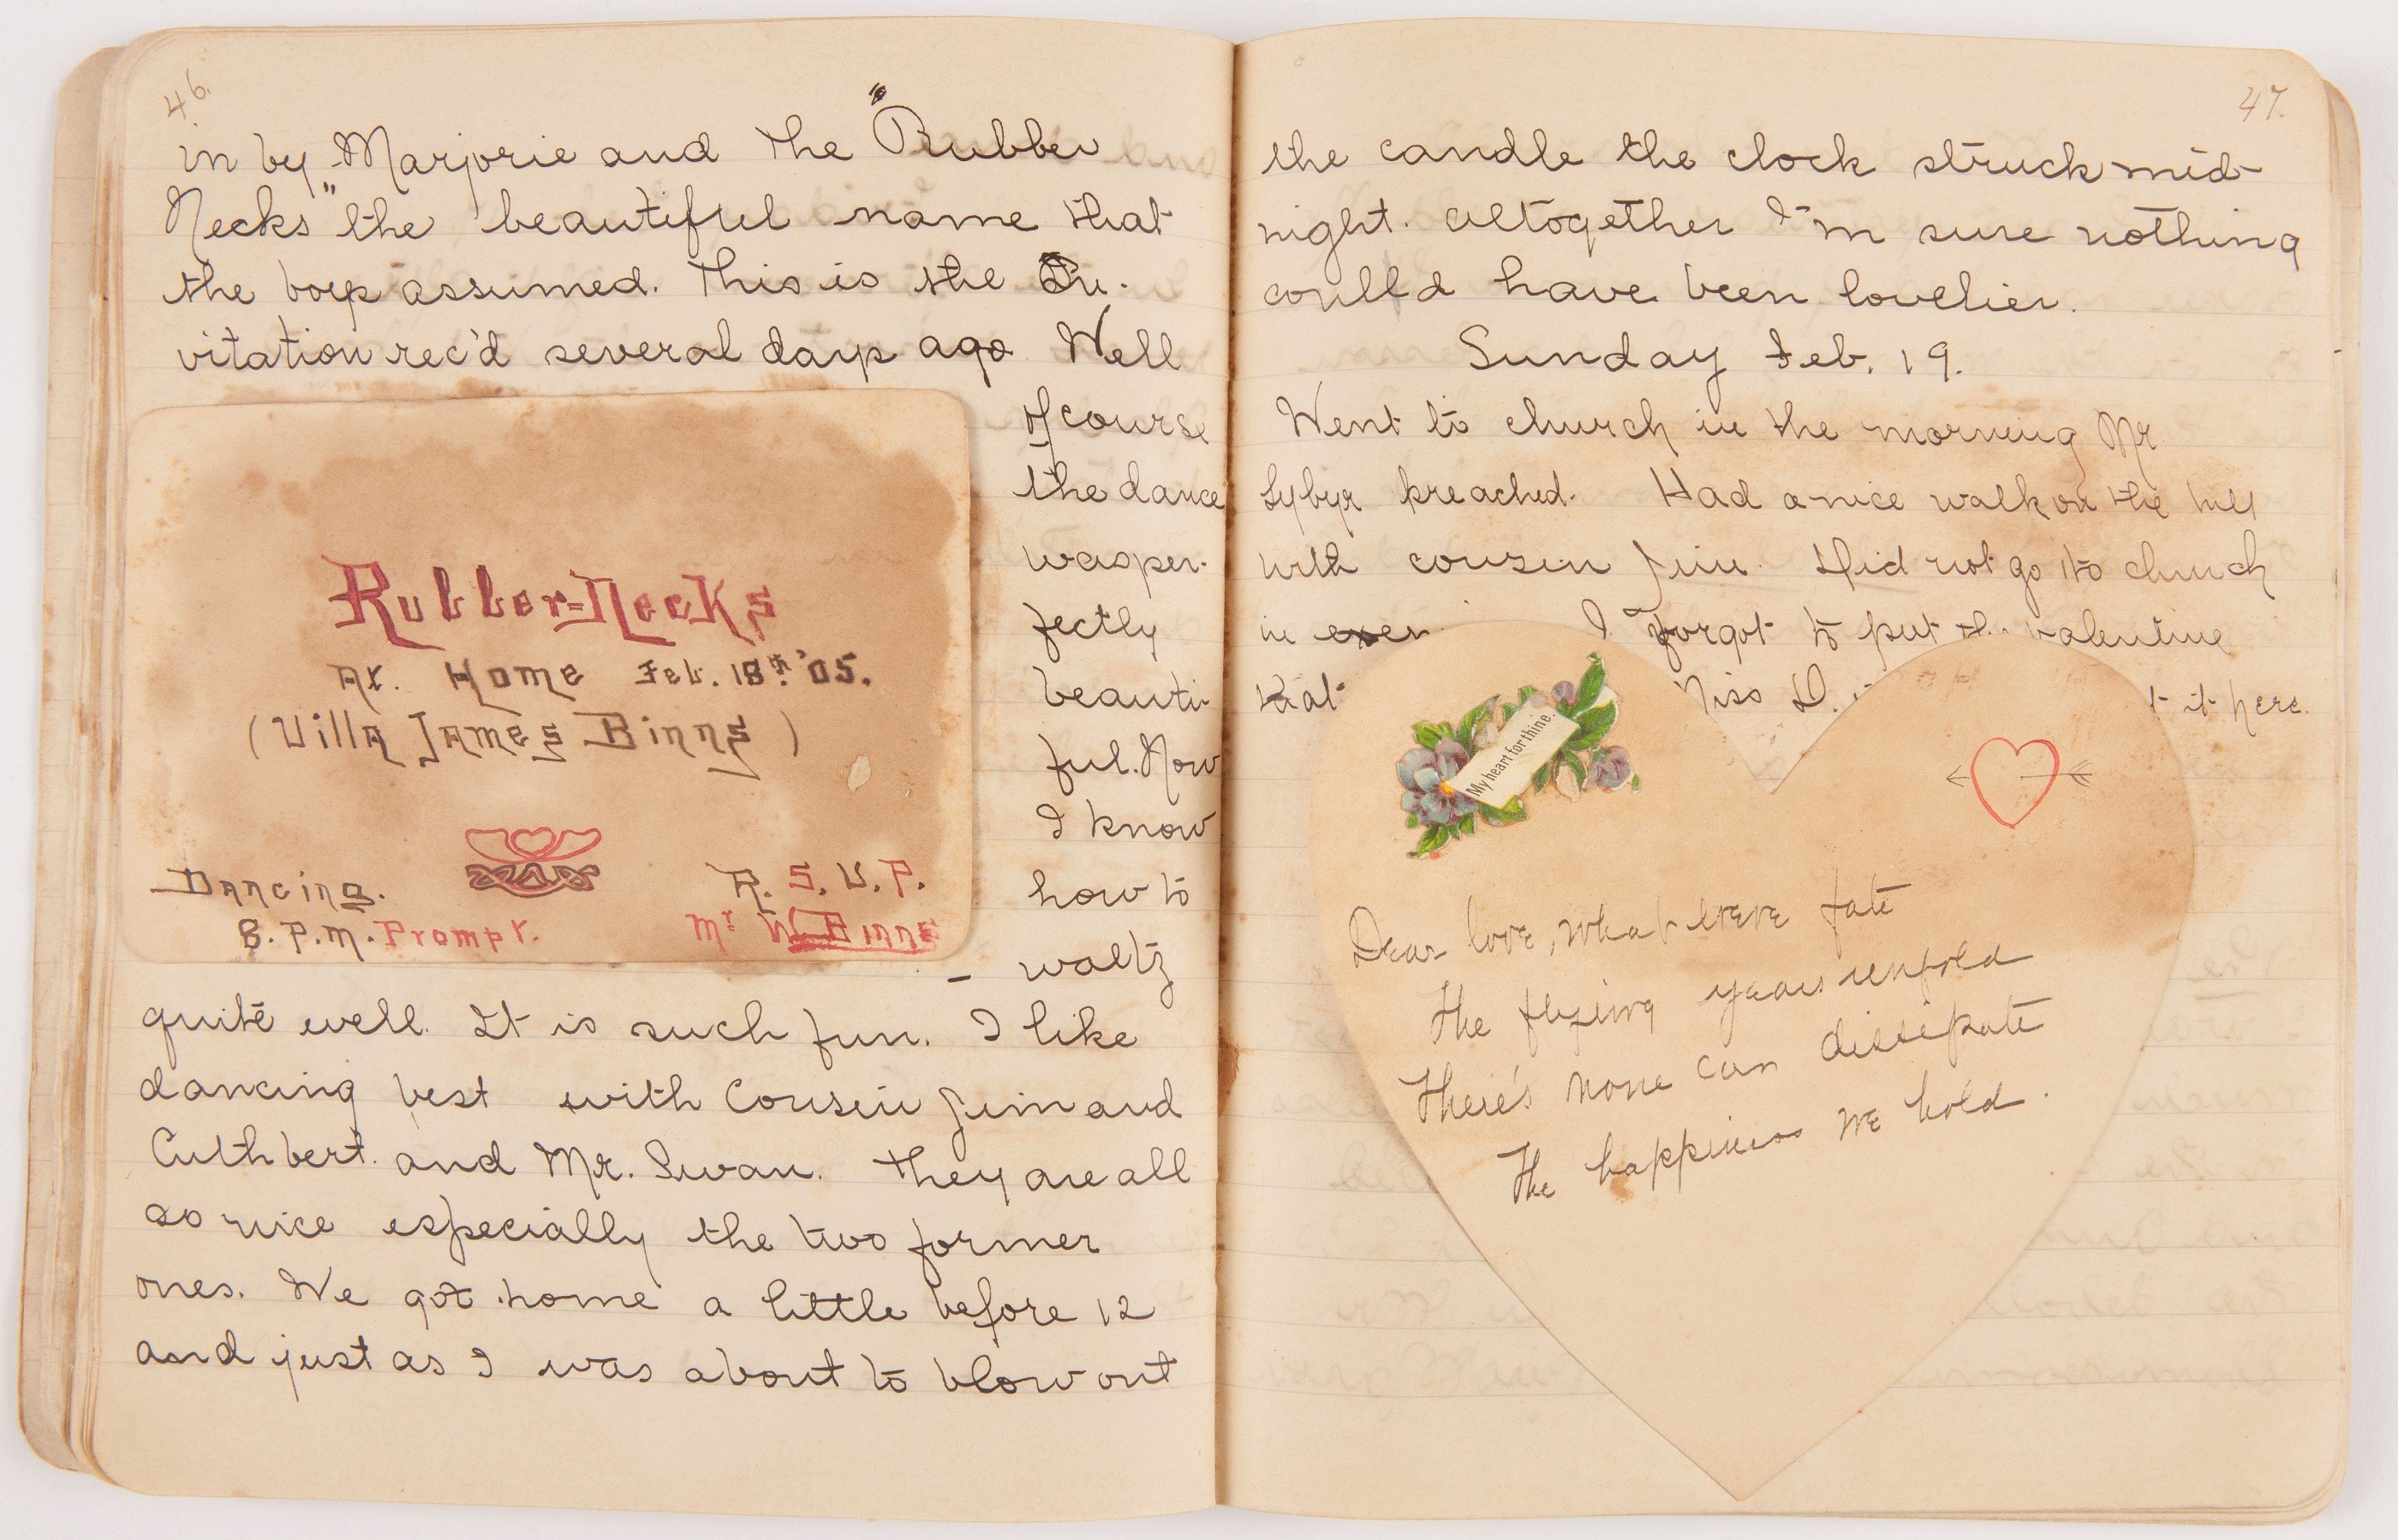 46.
in by Marjorie and the "Rubber
Necks" the beautiful name that
the boys assumed. This is the In-
vitation rec'd several days ago Well
of course
the dance
was per-
fectly
beauti-
ful. Now
I know
how to
waltz
Rubber=Necks
At. Home Feb. 18th '05.
(Villa James Binns)
Dancing.
8. P.M. Prompt.
R. S. V. P.
Mr W. Binns
quite well. It is such fun. I like
dancing best with Cousin Jim and
Cuthbert. and Mr. Swan. They are all
so nice especially the two former
ones. We got home a little before 12
and just as I was about to blow out
47.
the candle the clock struck mid-
night. Altogether I'm sure nothing
could have been lovelier.
Sunday Feb. 19.
Went to church in the morning Mr
preached. Had a nice walk on the hill
with cousin Jim. Did not go to church
in I forgot to put valentine
that Miss D. it here.
My heart for thine.
Dear love, whatever fate
The flying years unfold
There's none can dissipate
The happiness we hold.